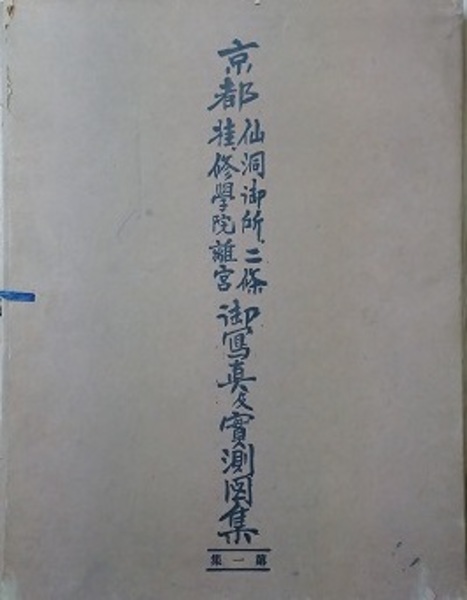 京都
仙洞御所、二條
桂、修學院離宮
御寫真及實測図集
第一集